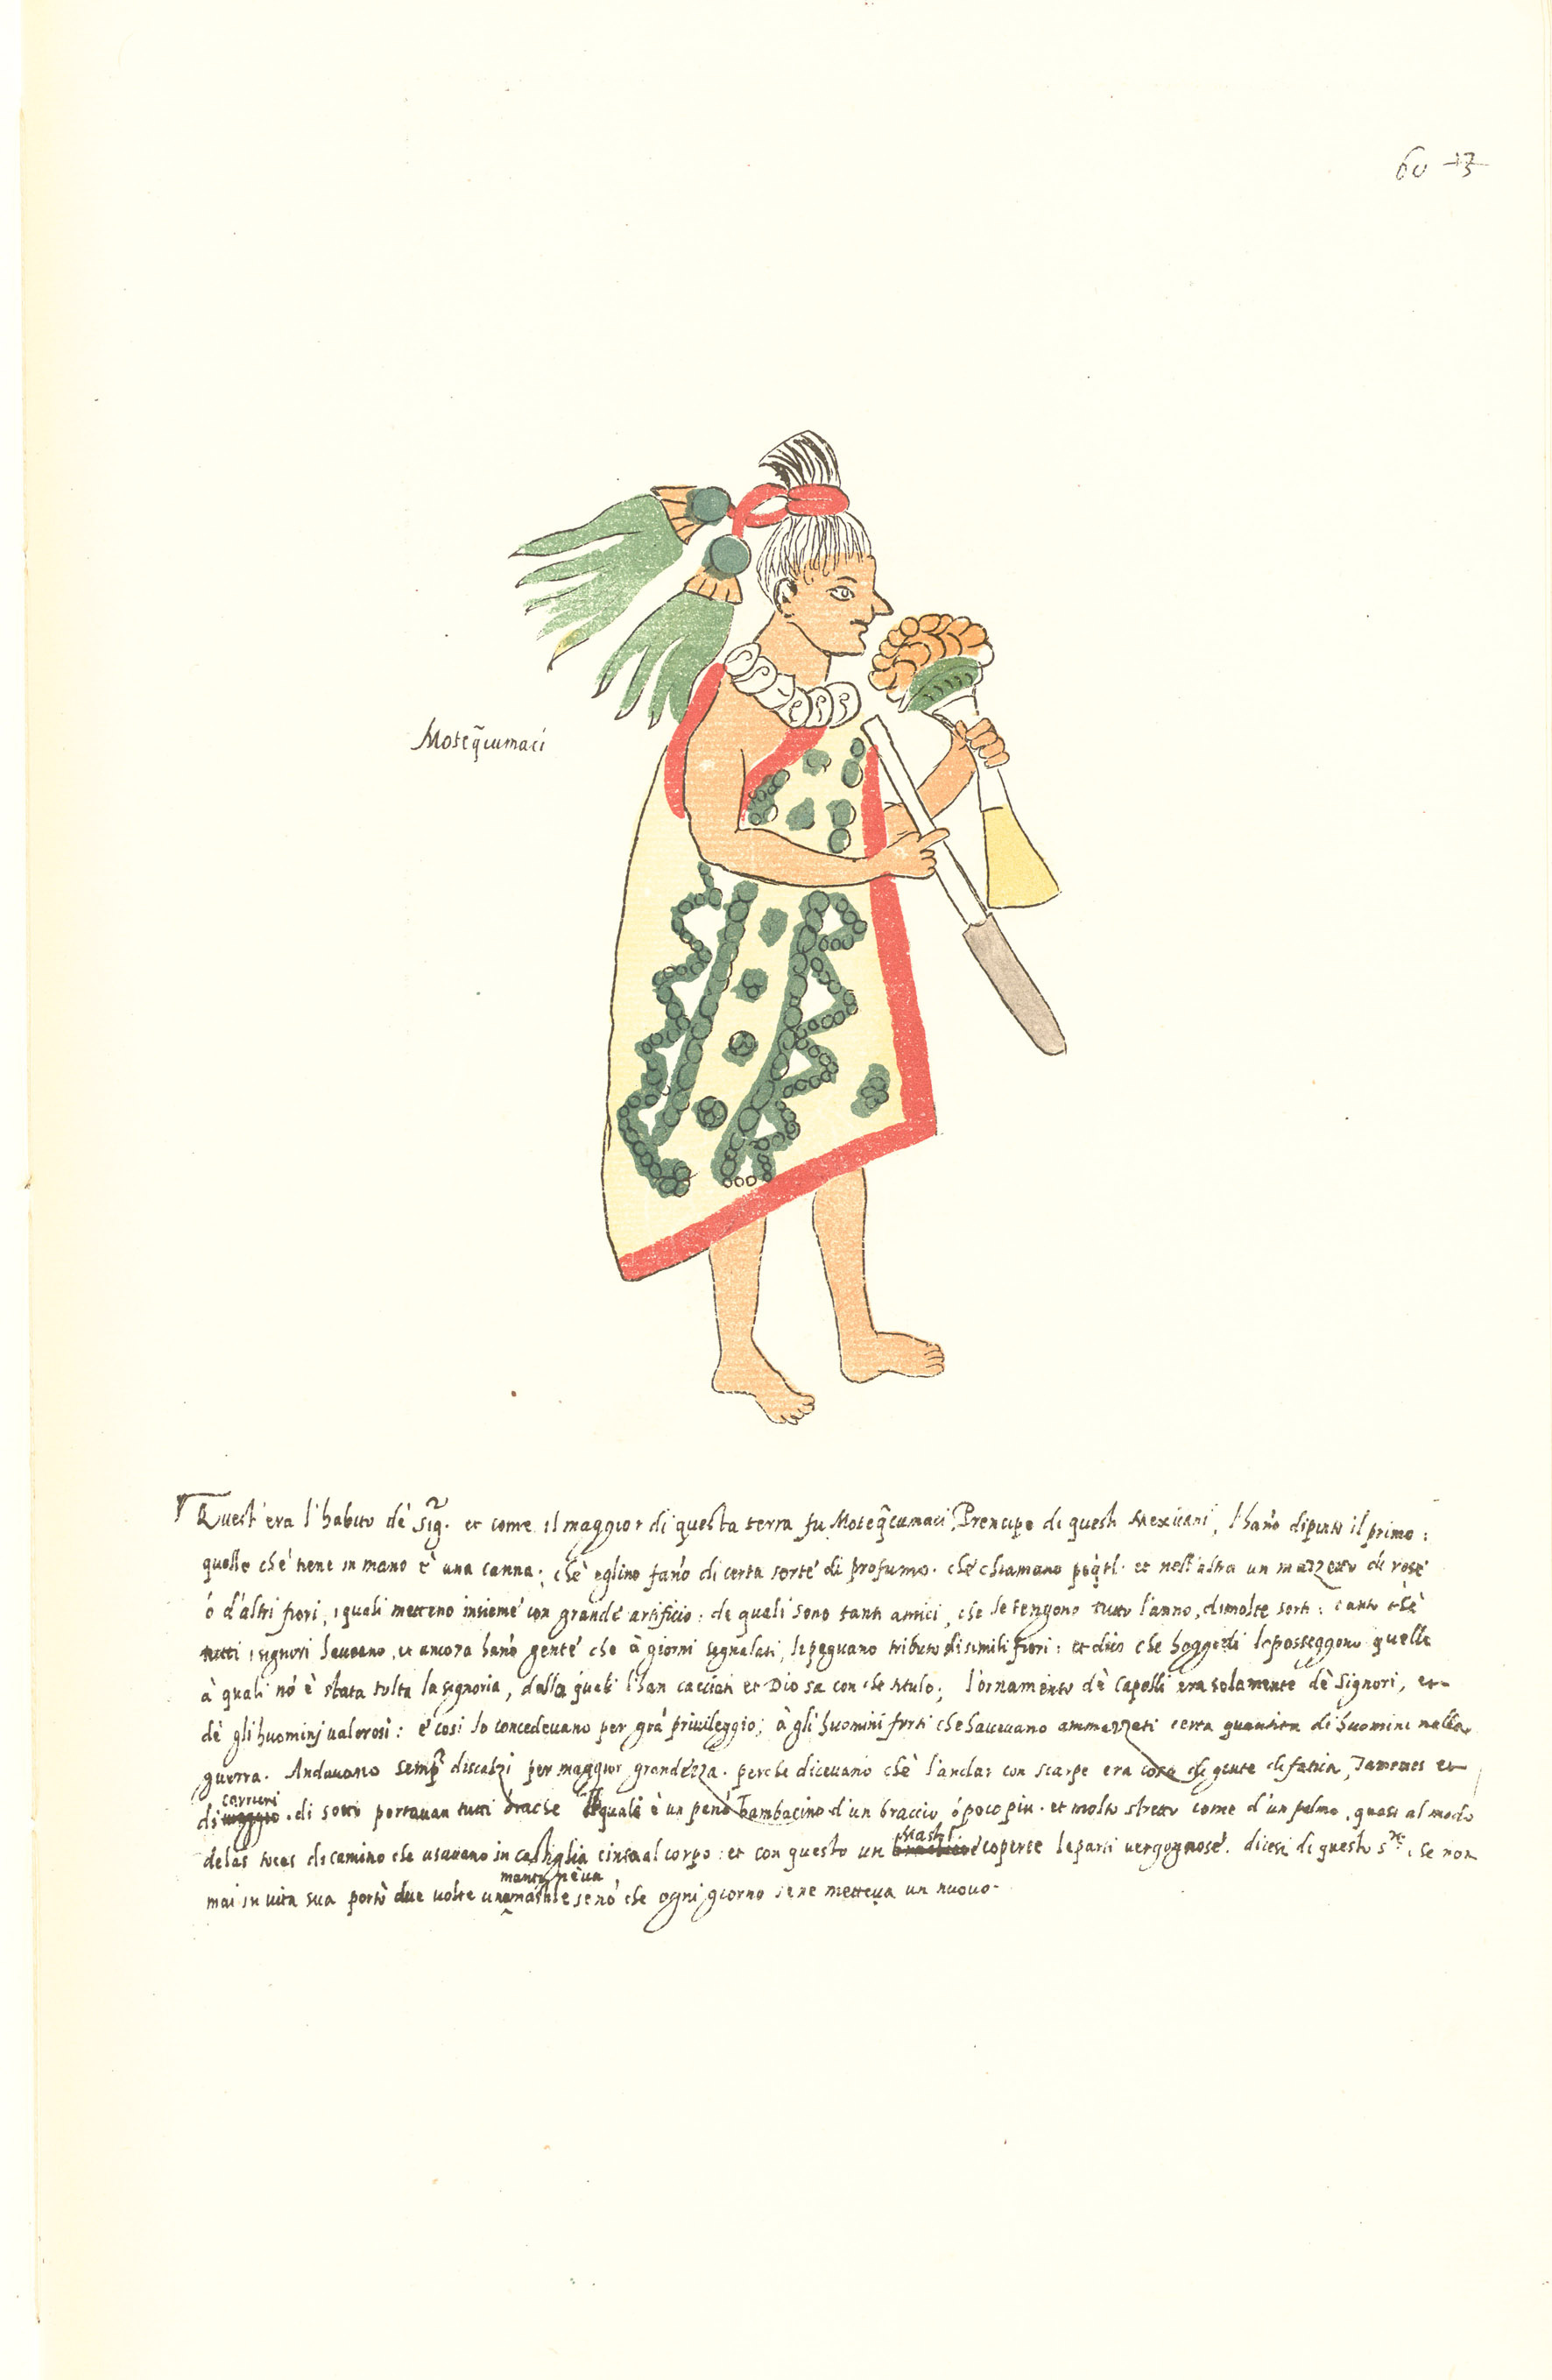 60
Moteq̃cumaci
Quest'era l'habito dè Sig.ri et come il maggior di questa terra fu Moteq̃cumaci, Prencipe di questi Mexicani, l'hano dipinto il primo:
quello ché tiene in mano è una canna; chè eglino fano di certa sorte di profumo. che chiamano et nell'altra un mazzetto di rose
ó d'altri fiori, i quali metteno insieme con grande artificio: de quali sono tanti amici, che le tengono tutto l'anno, di molte sorti: tanto chè
tutti i signori haueano, et ancora hanó gente che à giorni segnalati, le pagauano tributo di simili fiori: et dico che hoggedi le posseggono quelli
à quali nó è stata tolta la segnoria, dalla quali l'han cacciati et Dio sa con che titulo; l'ornamento dè capelli era solamente dè Signori, et
dè gli huominj ualorosi: é cosi lo concedeuano per grá priuileggio; à gli huomini forti che haueuano ammazzati certa quantita di huomini nella
guerra. Andauano semp̃ discalzi per maggior grandezza. perche diceuano chè l'andar con scarpe era cosa di gente di fatica, Tamemes et
di carrieri. di sotto portauan tutti brache quali è un pano bambacino d'un braccio ó poco piu. et molto stretto come d'un palmo, quasi al modo
de las tocas de camino che usauano in castiglia cinta al corpo: et con questo un mastl. coperte le parti uergognose. dicesi di questo s.re, se non
mai in uita sua portò due uolte una manta nè un mastle senó che ogni giorno se ne metteua un nuouo.